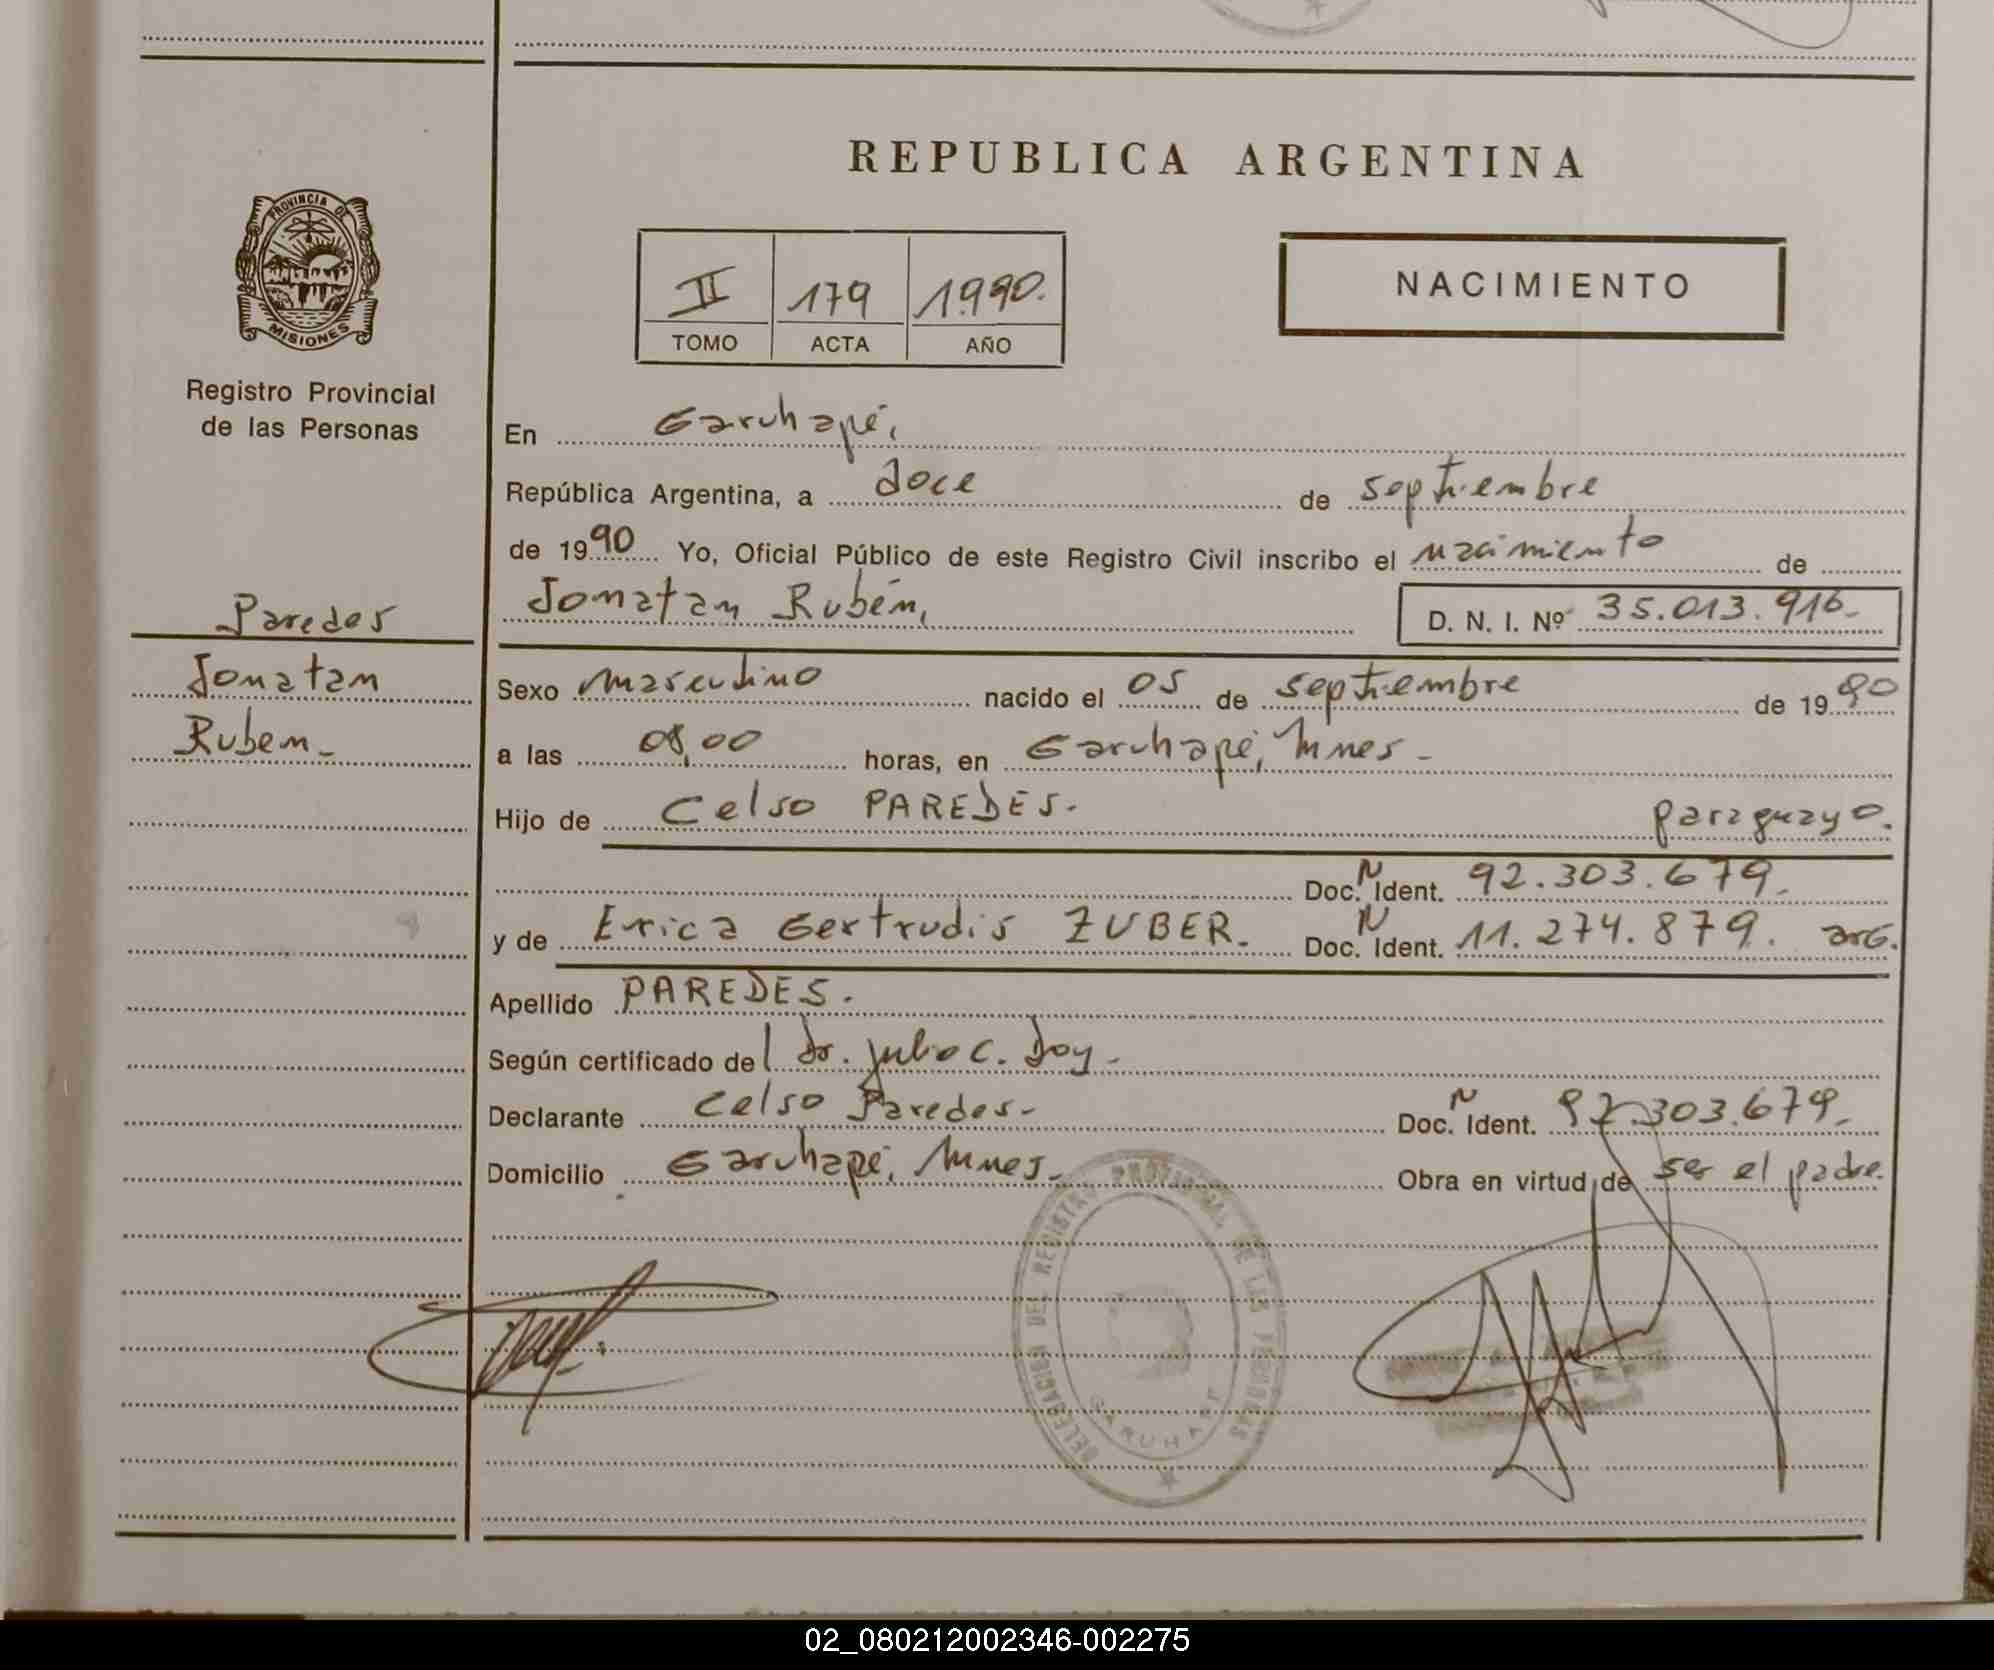 REPUBLICA ARGENTINA
PROVINCIA DE
MISIONES
Registro Provincial
de las Personas
II 179 1.990.
TOMO ACTA AÑO
NACIMIENTO
En Garuhapé,
República Argentina, a doce de septiembre
de 1990 Yo, Oficial Público de este Registro Civil inscribo el nacimiento de
Jonatan Rubén, D. N. I. Nº 35.013.916-
Paredes
Jonatan
Ruben-
Sexo masculino nacido el 05 de septiembre de 1990
a las 08,00 horas, en Garuhapé, Mnes-
Hijo de Celso PAREDES. paraguayo.
Doc. N Ident. 92.303.679.
y de Erica Gertrudis ZUBER. Doc. N Ident. 11.274.879. arG.
Apellido PAREDES.
Según certificado del Dr. Julio C. Doy-
Declarante Celso Paredes- Doc. N Ident. 92.303.679-
Domicilio Garuhapé, Mnes- Obra en virtud de ser el padre.
DELEGACION DEL REGISTRO PROVINCIAL DE LAS PERSONAS
GARUHAPE
02_080212002346-002275